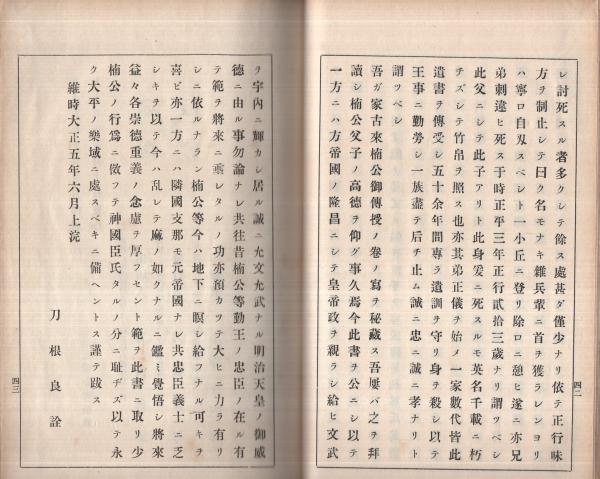 シ討死スル者多クシテ餘ス處甚ダ僅少ナリ依テ正行味
方ヲ制止シテ曰ク名モナキ雜兵輩ニ首ヲ獲ラレンヨリ
ハ寧ロ自刃スベシト一小丘ニ登リ除ロニ憩ヒ遂ニ亦兄
弟刺違ヒ死ス于時正平三年正行貳拾三歲ナリ謂ツベシ
此父ニシテ此子アリト此身爰ニ死スルモ英名千載ニ朽
チズシテ竹帛ヲ照ス也亦其弟正儀ヲ始メ一家數代皆此
遺書ヲ傳受シ五十余年間專ラ遺訓ヲ守リ身ヲ殺シ以テ
王事ニ勤勞シ一族盡テ后チ止ム誠ニ忠ニ誠ニ孝ナリト
謂ツベシ
吾ガ家古來楠公御傳授ノ卷ノ寫ヲ秘藏ス吾屢バ之ヲ拜
讀シ楠公父子ノ高德ヲ仰グ事久焉今此書ヲ公ニシ以テ
一方ニハ方帝國ノ隆昌ニシテ皇帝政ヲ親ラシ給ヒ文武
四二
ヲ宇内ニ輝カシ居ル誠ニ允文允武ナル明治天皇ノ御威
德ニ由ル事勿論ナレ共往昔楠公等勤王ノ忠臣ノ在ル有
テ範ヲ將來ニ乘レタルノ功亦預カツテ大ヒニ力ラ有リ
シニ依ルナラン楠公等今ハ地下ニ瞑シ給フナル可キヲ
喜ビ亦一方ニハ隣國支那モ元帝國ナレ共忠臣義士ニ乏
シキヲ以テ今ハ乱レテ麻ノ如クナルニ鑑ミ覺悟シ將來
益々各崇德重義ノ念慮ヲ厚フセント範ヲ此書ニ取リ少
楠公ノ行爲ニ倣フテ神國臣民タルノ分ニ耻ヂズ以テ永
ク大平ノ樂域ニ處スベキニ備ヘントス謹テ跋ス
維時大正五年六月上浣
刀根良詮
四三